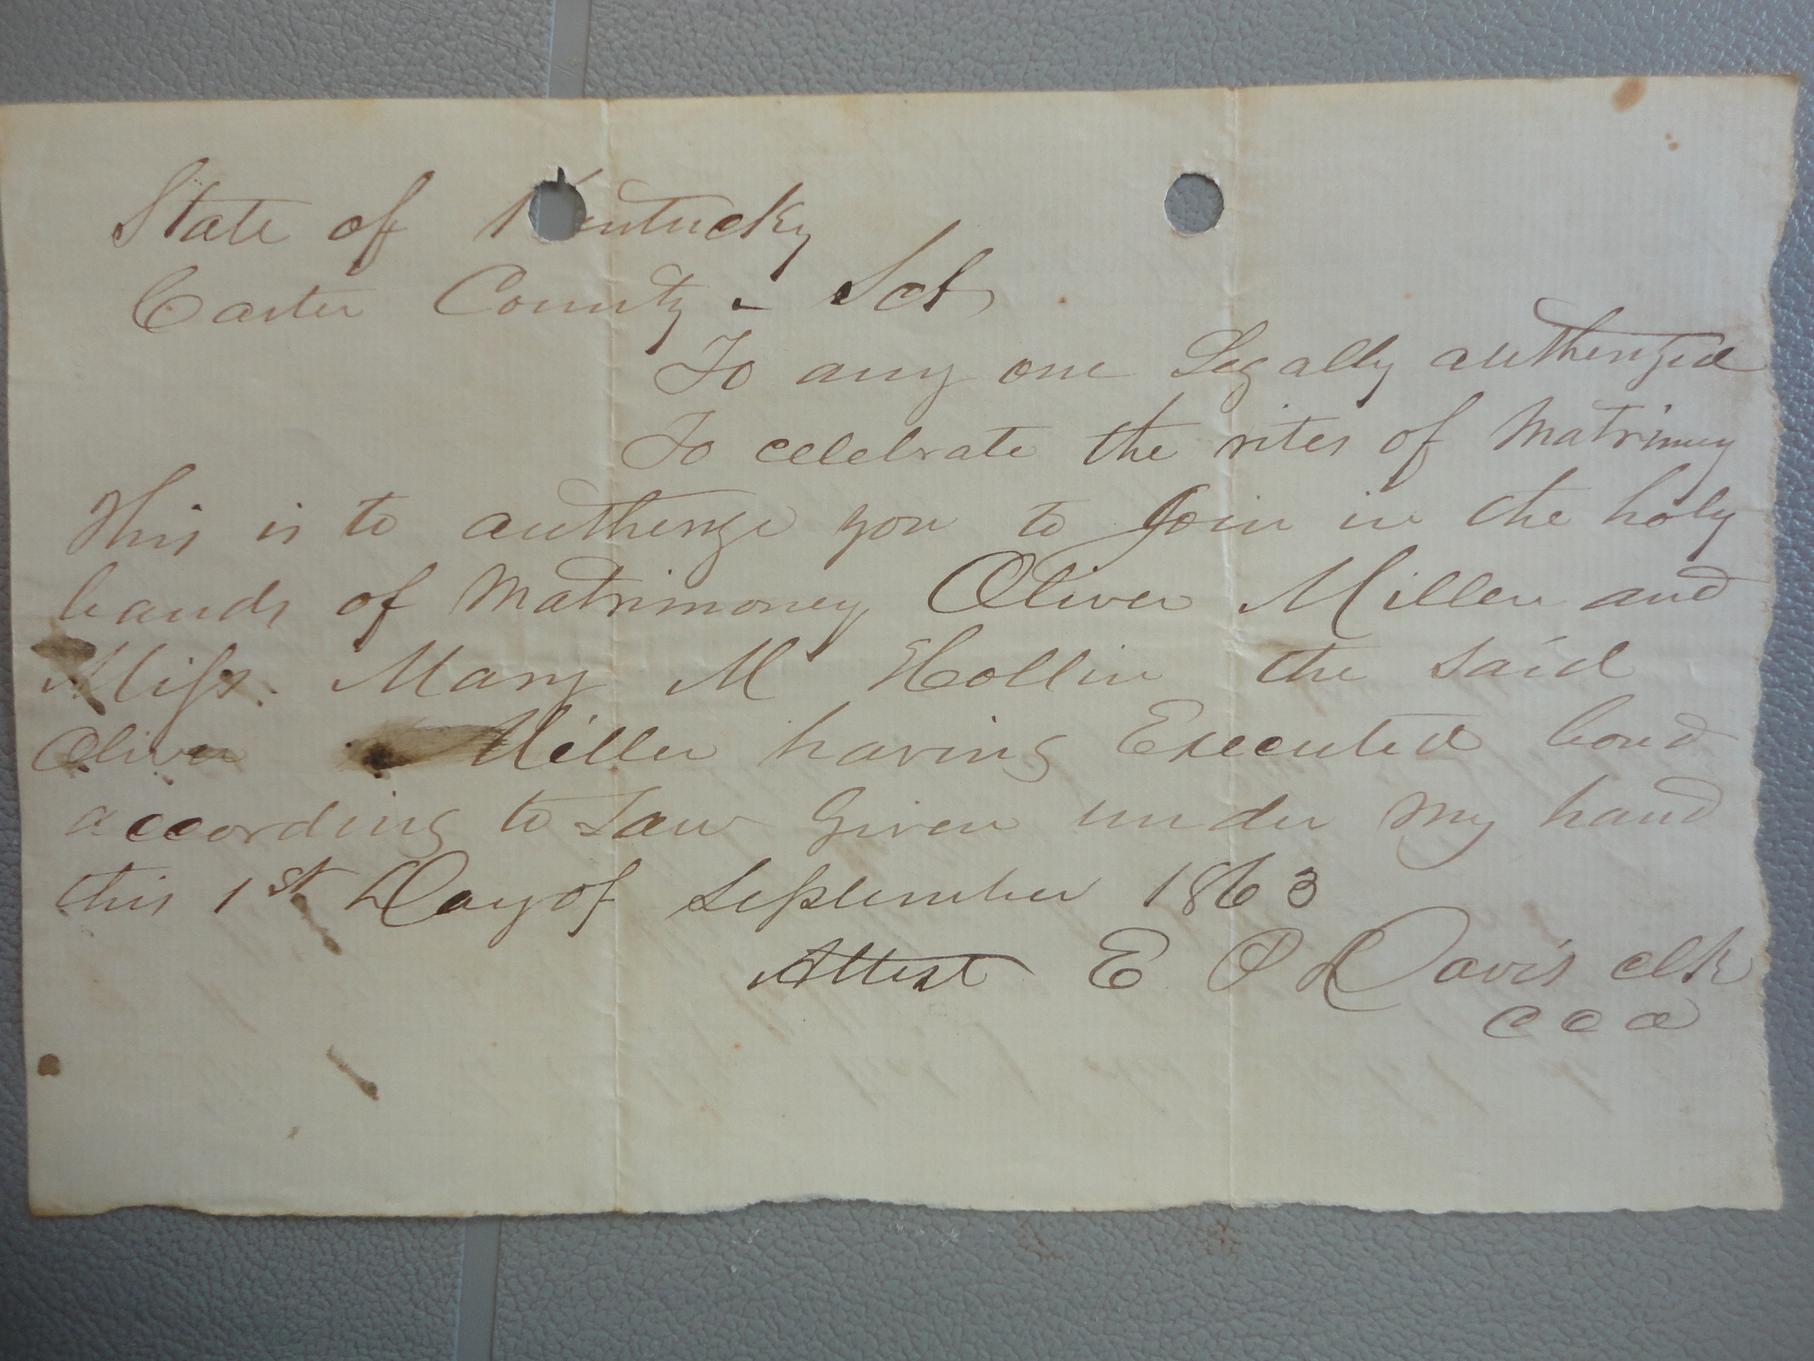 State of Kentucky
Carter County - Sct
To any one Legally authenzed
To celebrate the rites of Matrimny
This is to authenze you to Join in the holy
bands of Matrimoney Oliver Miller and
Miss. Mary M Hollin the said
Oliver Miller having Executed bond
according to Law Given under my hand
this 1st Day of September 1863
Attest E D Davis clk
C C C